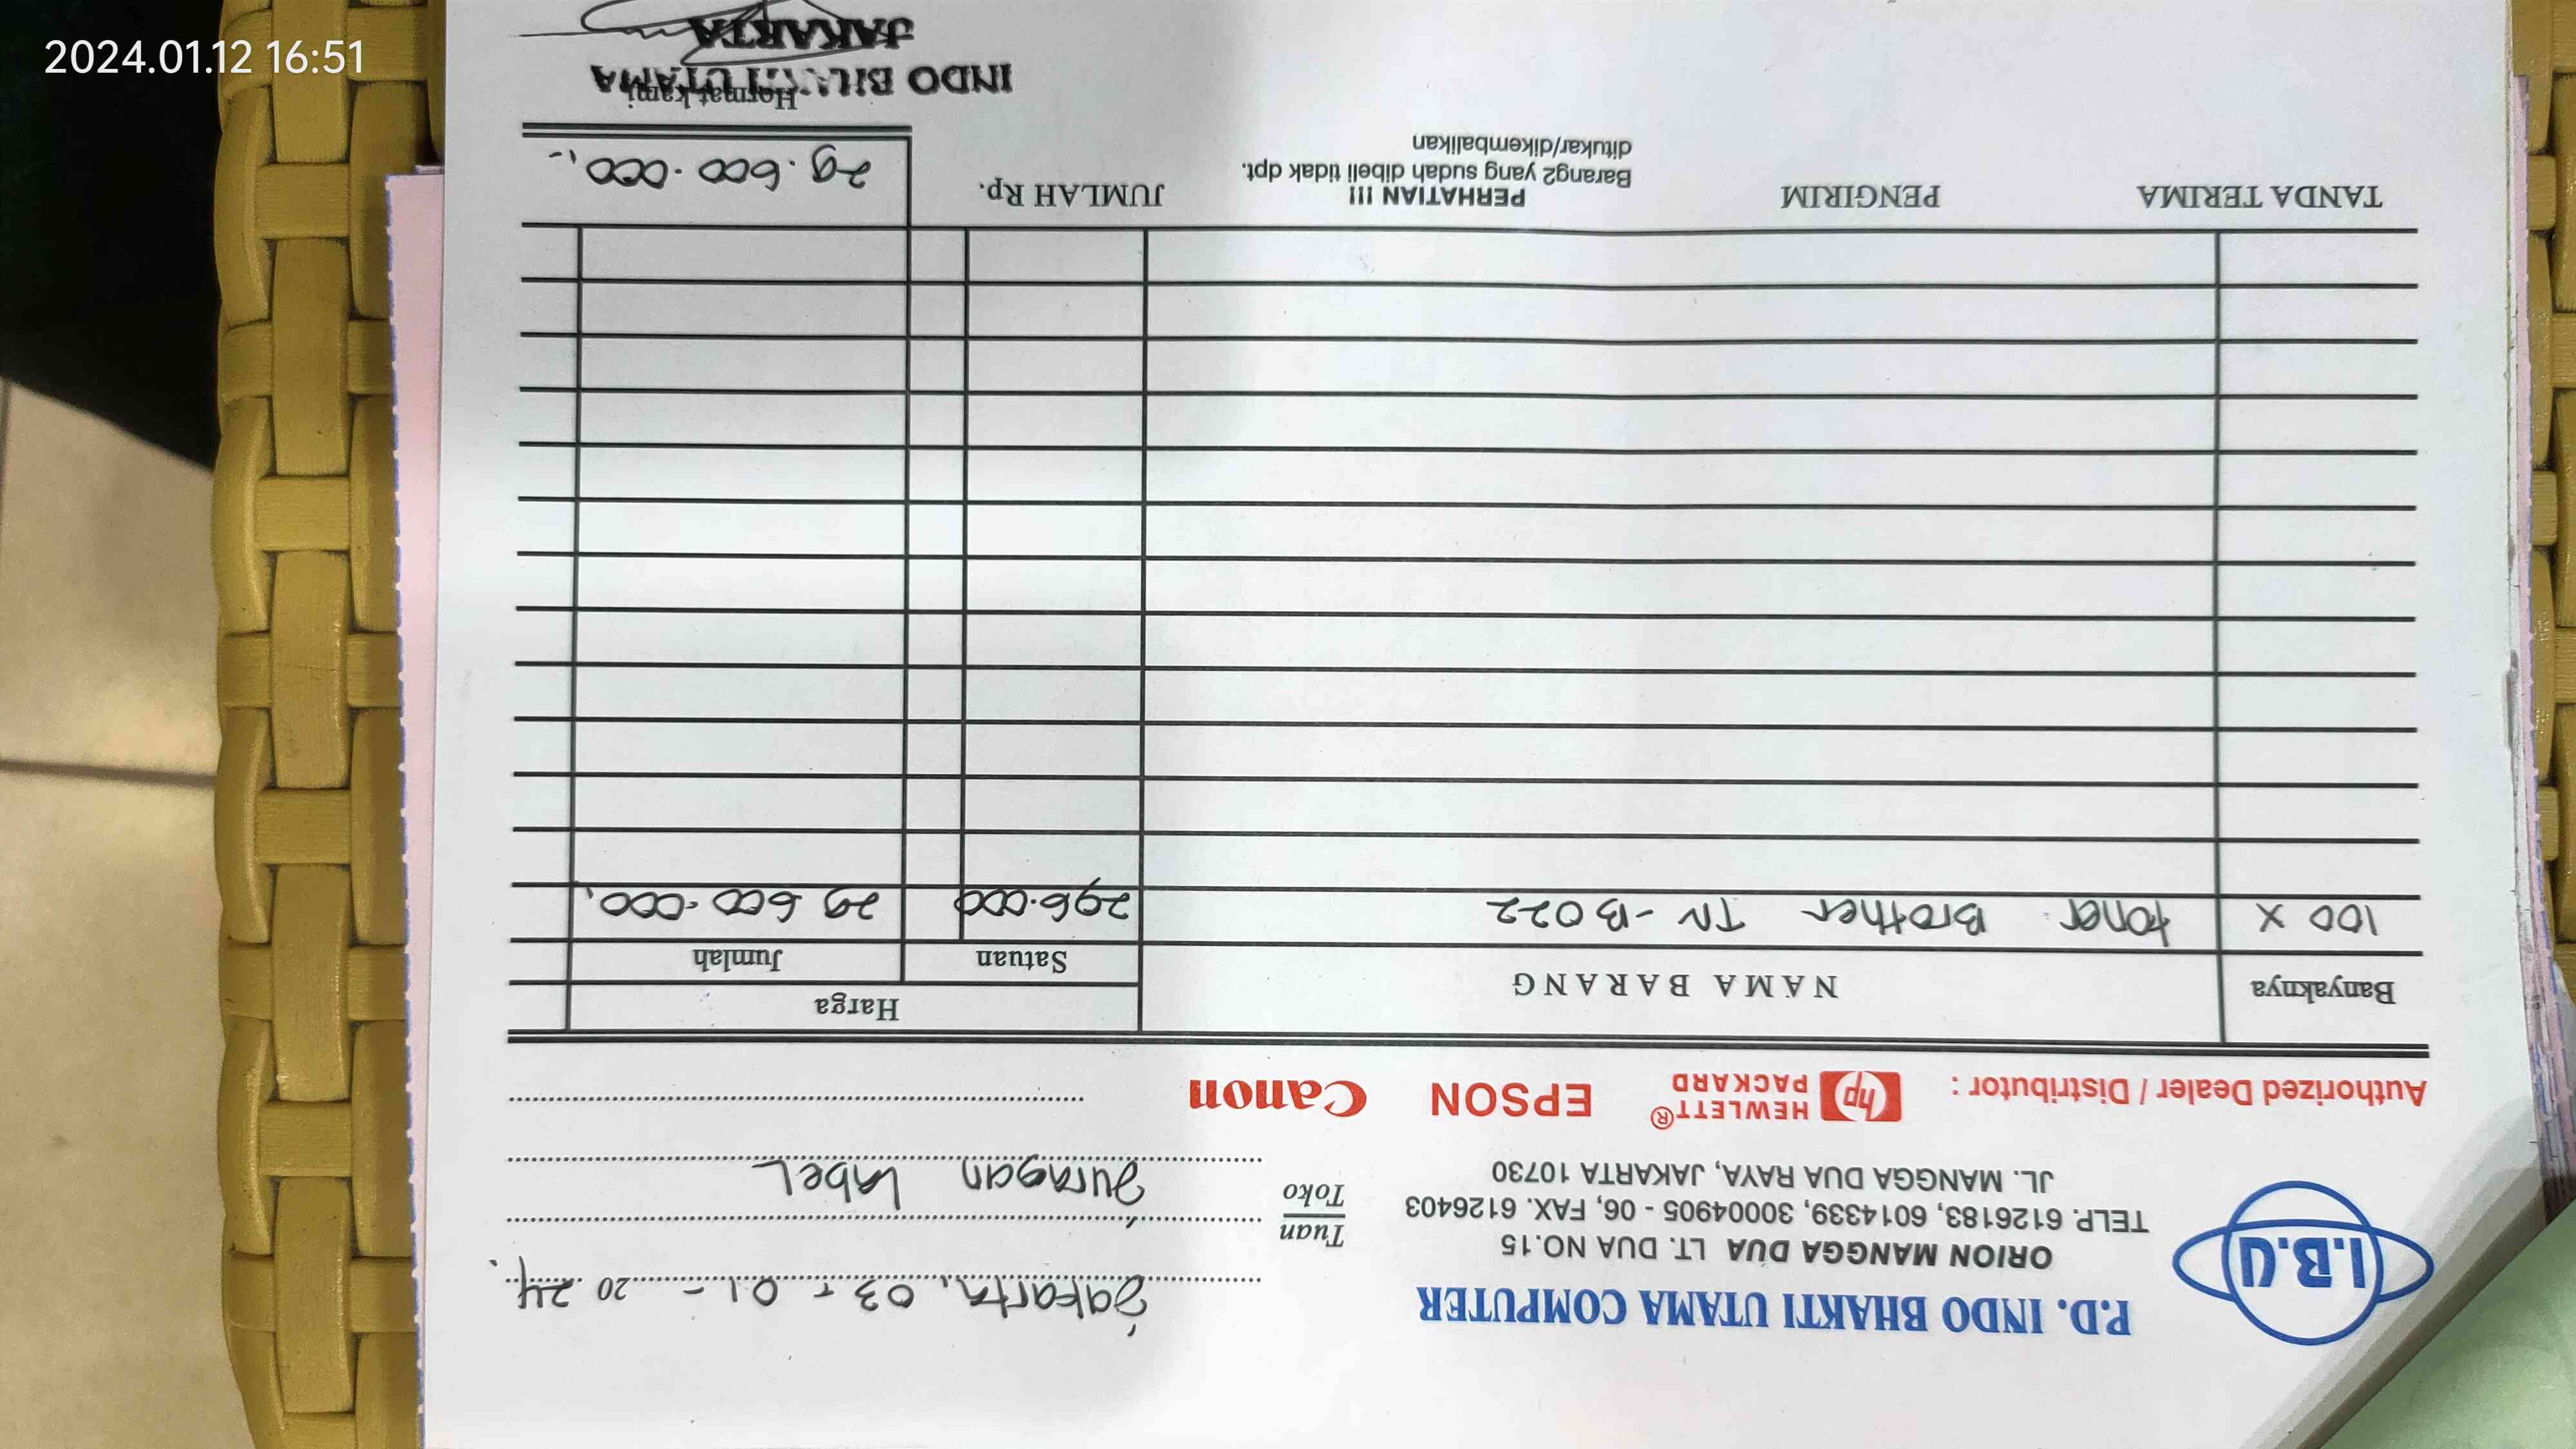 2024.01.12 16:51
I.B.U
P.D. INDO BHAKTI UTAMA COMPUTER
ORION MANGGA DUA LT. DUA NO.15
TELP. 6126183, 6014339, 30004905 - 06, FAX. 6126403
JL. MANGGA DUA RAYA, JAKARTA 10730
Jakarta, 03 - 01 - 20 24
Tuan
Toko
Juragan Label
Authorized Dealer / Distributor : hp HEWLETT® PACKARD EPSON Canon
Banyaknya NAMA BARANG Harga
Satuan Jumlah
100 X toner Brother TN-B022 296.000 29 600.000,
TANDA TERIMA PENGIRIM PERHATIAN !!! JUMLAH Rp. 29.600.000,-
Barang2 yang sudah dibeli tidak dpt.
ditukar/dikembalikan
Hormat kami
INDO BHAKTI UTAMA
JAKARTA